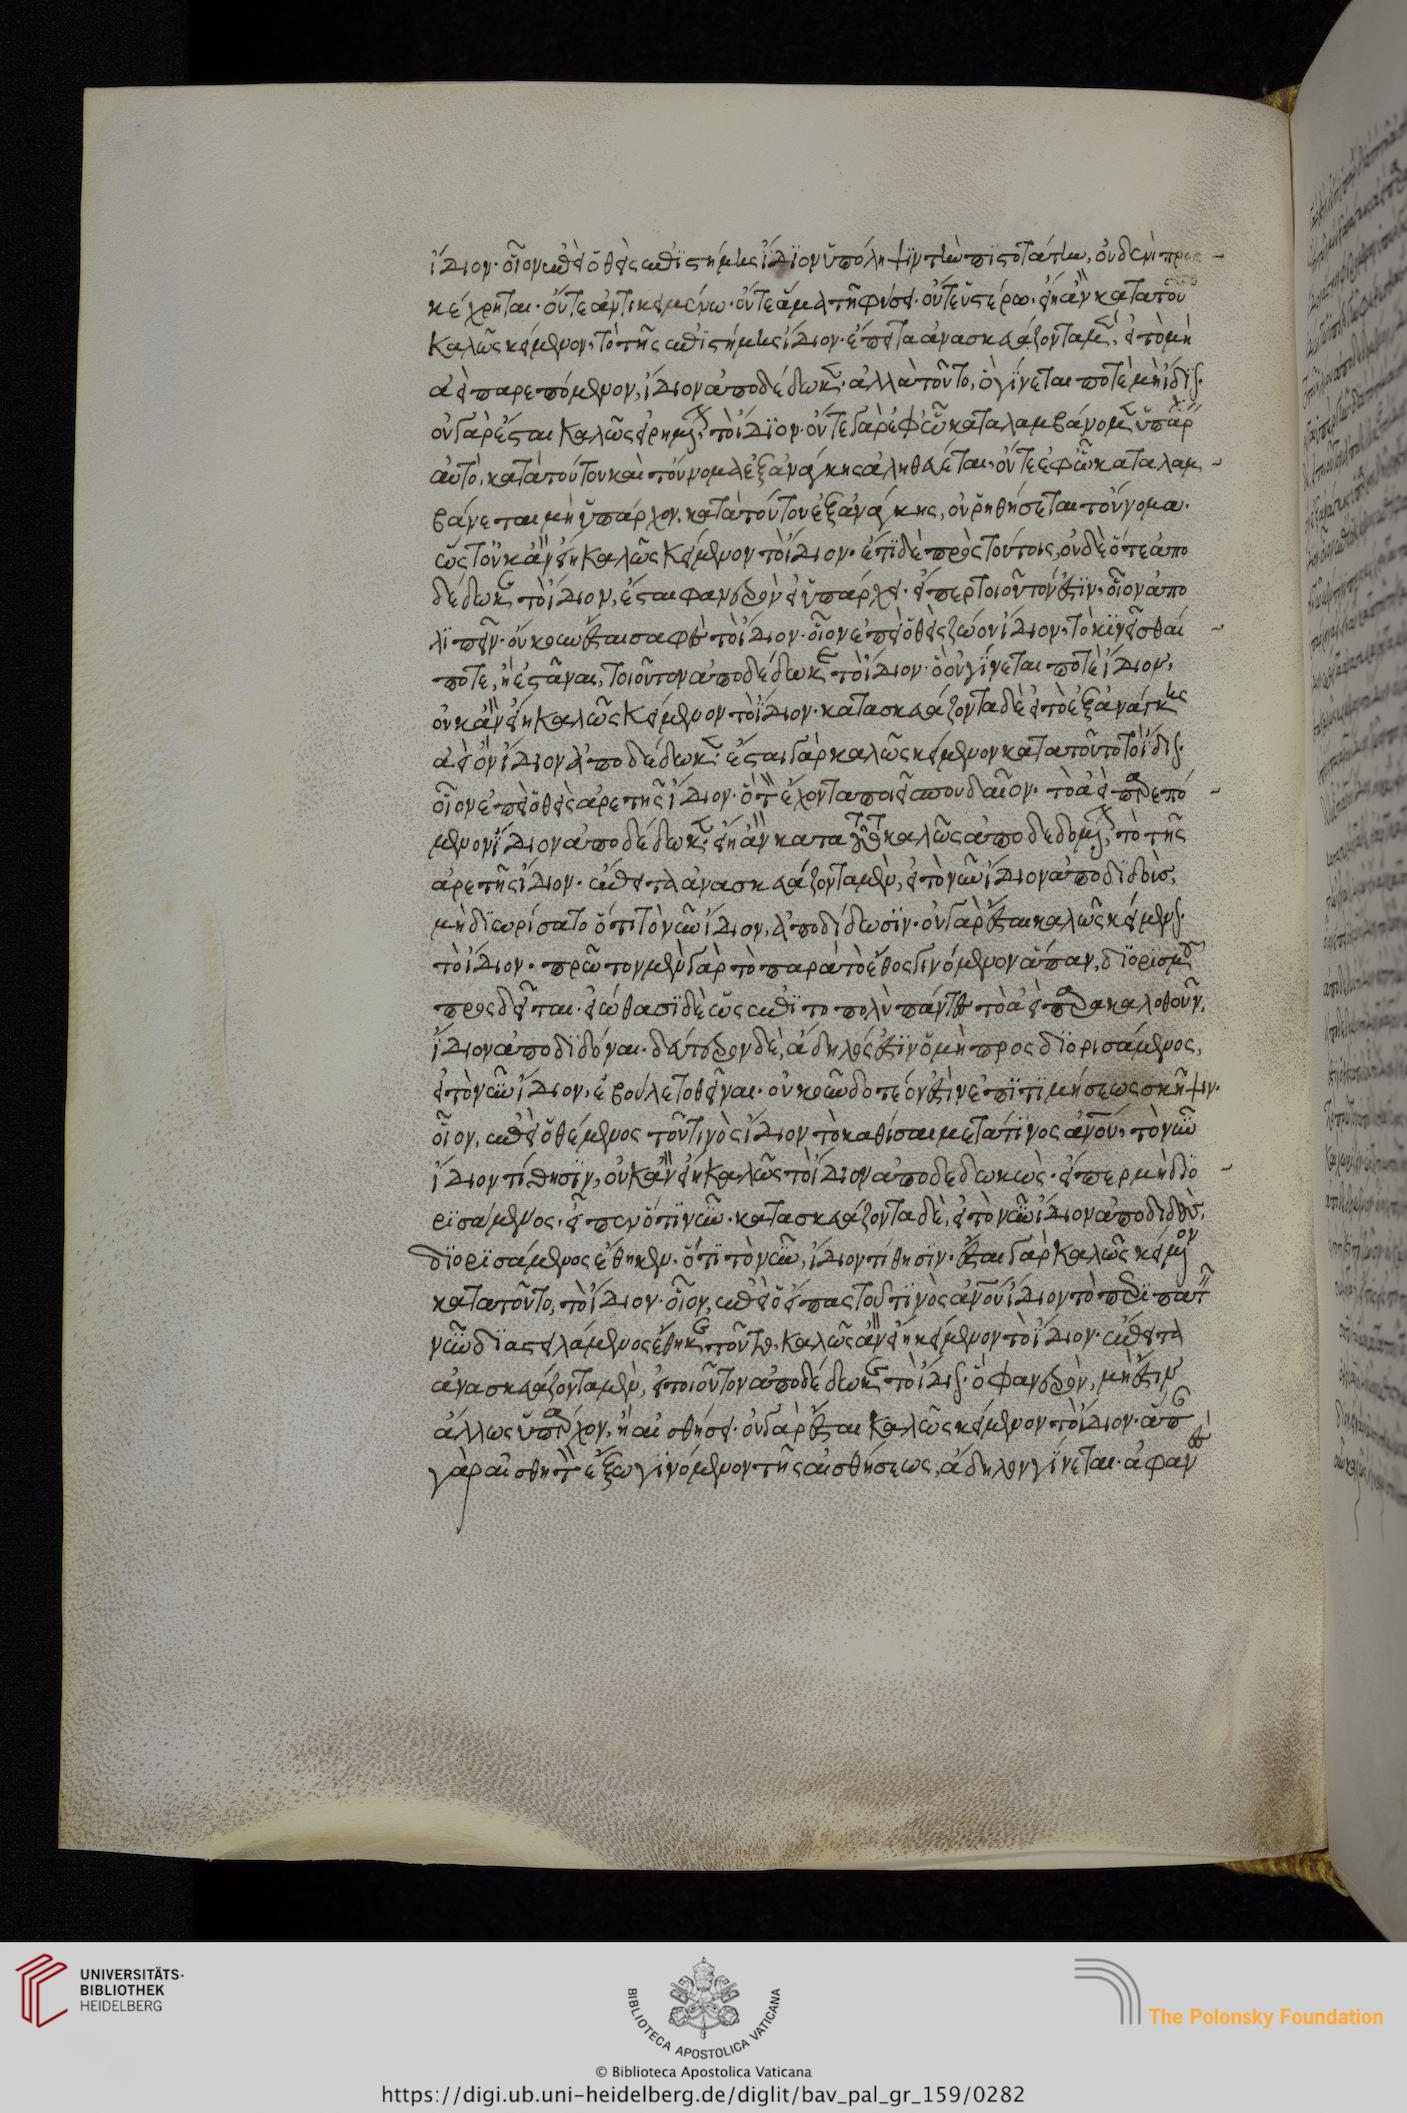 ἴδιον· οἷον ἐπεὶ ὁ θεὶς ἐπιστήμης ἴδιον ὑπόληψιν τὴν πιστοτάτην, οὐδενὶ προσ
κέχρηται· οὔτε ἀντικειμένω· οὔτε ἅμα τῆ φύσει· οὔτε ὑστέρω· εἴη ἂν κατὰ τοῦ
καλῶς κείμενον, τὸ τῆς ἐπιστήμης ἴδιον· ἔπειτα ἀνασκευάζοντα μὲν, εἰ τὸ μὴ
ἀεὶ παρεπόμενον, ἴδιον ἀποδέδωκεν· ἀλλὰ τοῦτο, ὃ γίνεται ποτὲ μὴ ἴδιον·
οὐ γὰρ ἔσται καλῶς εἰρημένον τὸ ἴδιον· οὔτε γὰρ ἐφ' ὧ καταλαμβάνομεν ὑπάρ
αὐτὸ, κατὰ τούτου καὶ τοὔνομα ἐξ ἀνάγκης ἀληθεύεται· οὔτε ἐφ' ὧ καταλαμ
βάνεται μὴ ὑπάρχον, κατὰ τούτου ἐξ ἀνάγκης, οὐ ῥηθήσεται τοὔνομα·
ὥστ' οὐκ ἂν εἴη καλῶς κείμενον τὸ ἴδιον· ἔτι δὲ πρὸς τούτοις, οὐδὲ ὅτε ἀπο
δέδωκε τὸ ἴδιον, ἔσται φανερὸν εἰ ὑπάρχει· εἴπερ τοιοῦτόν ἐστιν, οἷον ἀπο
λιπεῖν· οὐκοῦν ἔσται σαφὲς τὸ ἴδιον· οἷον ἐπεὶ ὁ θεὶς ζώου ἴδιον, τὸ κινεῖσθαί
ποτε, ἢ ἑστάναι, τοιοῦτον ἀποδέδωκε τὸ ἴδιον· ὃ οὐ γίνεται ποτὲ ἴδιον,
οὐκ ἂν εἴη καλῶς κείμενον τὸ ἴδιον· κατασκευάζοντα δὲ εἰ τὸ ἐξ ἀνάγκης
ἀεὶ ὂν ἴδιον ἀποδέδωκεν· ἔσται γὰρ καλῶς κείμενον κατὰ τοῦτο τὸ ἴδιον·
οἷον ἐπεὶ ὁ θεὶς ἀρετῆς ἴδιον· ὃ τὸν ἔχοντα ποιεῖ σπουδαῖον· τὸ ἀεὶ παρεπό
μενον ἴδιον ἀποδέδωκεν· εἴη ἂν κατὰ τοῦτο καλῶς ἀποδεδομένον τὸ τῆς
ἀρετῆς ἴδιον· ἔπειτα ἀνασκευάζοντα μὲν, εἰ τὸ νῦν ἴδιον ἀποδιδοὺς,
μὴ διωρίσατο ὅτι τὸ νῦν ἴδιον, ἀποδίδωσιν· οὐ γὰρ ἔσται καλῶς κείμενον
τὸ ἴδιον· πρῶτον μὲν γὰρ τὸ παρὰ τὸ ἔθος γινόμενον ἅπαν, διορισμοῦ
προσδεῖται· εἰώθασι δὲ ὡς ἐπὶ τὸ πολὺ πάντες τὸ ἀεὶ παρακολουθοῦν,
ἴδιον ἀποδιδόναι· δεύτερον δὲ, ἄδηλός ἐστιν ὁ μὴ προσδιορισάμενος,
εἰ τὸ νῦν ἴδιον, ἐβούλετο θεῖναι· οὐκοῦν δοτέον ἐστὶν ἐπιτιμήσεως σκῆψιν·
οἷον, ἐπεὶ ὁ θέμενος τοῦ τινὸς ἴδιον τὸ καθίσαι μετά τινος ἀνθρώπου, τὸ νῦν
ἴδιον τίθησιν, οὐκ ἂν εἴη καλῶς τὸ ἴδιον ἀποδεδωκὼς· εἴπερ μὴ διο
ρισάμενος· εἶπεν ὅτι νῦν· κατασκευάζοντα δὲ, εἰ τὸ νῦν ἴδιον ἀποδιδοὺς,
διορισάμενος ἔθηκεν· ὅτι τὸ νῦν, ἴδιον τίθησιν· ἔσται γὰρ καλῶς κείμενον
κατὰ τοῦτο, τὸ ἴδιον· οἷον, ἐπεὶ ὁ εἴπας τοῦ τινὸς ἀνθρώπου ἴδιον τὸ περιπατεῖν
νῦν διαστειλάμενος ἔθηκε τοῦτο, καλῶς ἂν εἴη κείμενον τὸ ἴδιον· ἔπειτα
ἀνασκευάζοντα μὲν, εἰ τοιοῦτον ἀποδέδωκε τὸ ἴδιον· ὃ φανερὸν, μὴ ἔστιν
ἄλλως ὑπάρχον, ἢ αἰσθήσει· οὐ γὰρ ἔσται καλῶς κείμενον τὸ ἴδιον· ἅπαν
γὰρ αἰσθητὸν ἔξω γινόμενον τῆς αἰσθήσεως, ἄδηλον γίνεται· ἀφανὲς
UNIVERSITÄTS-
BIBLIOTHEK
HEIDELBERG
BIBLIOTECA APOSTOLICA VATICANA
The Polonsky Foundation
© Biblioteca Apostolica Vaticana
https://digi.ub.uni-heidelberg.de/diglit/bav_pal_gr_159/0282